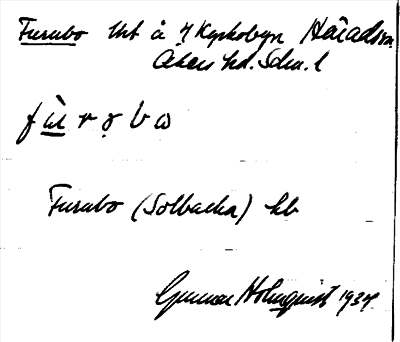 Furubo lht å f Kyrkobyn Häradsva
Åkers hd. Sdm. l
Furubo (Solbacka) kb
Gunnar Holmquist 1934.